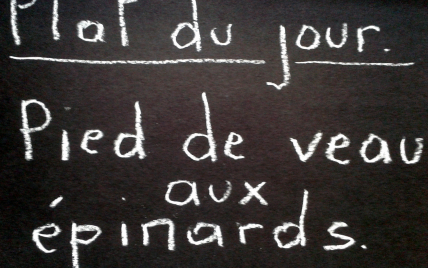 Plat du jour.
Pied de veau
aux
épinards.